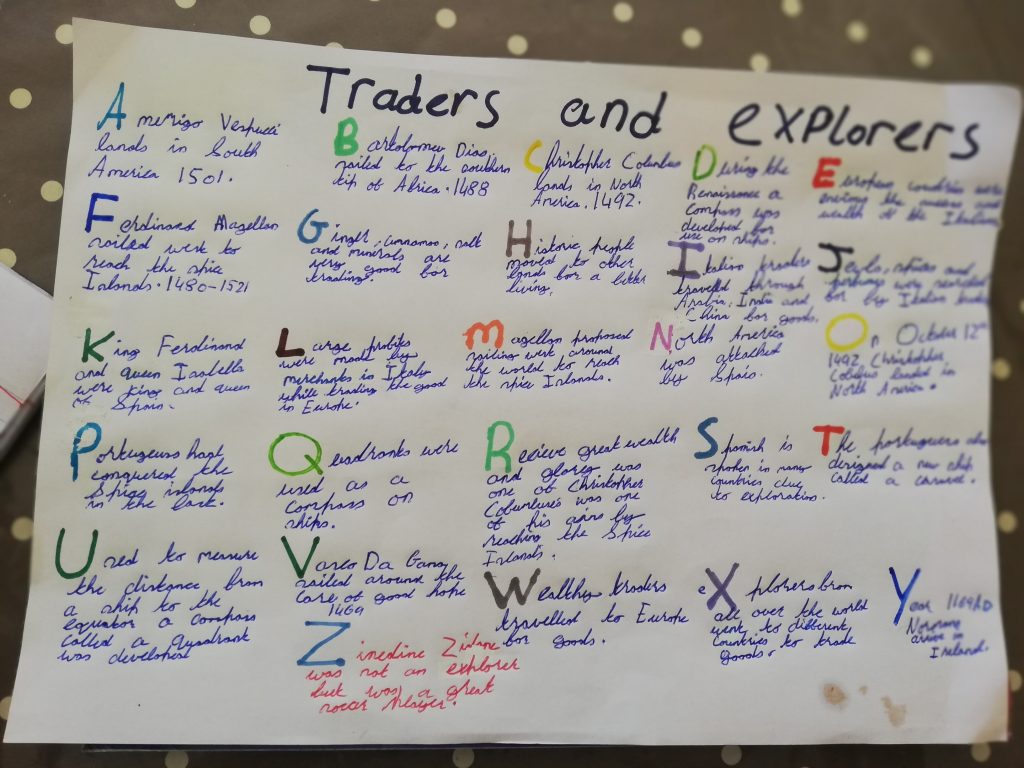 Traders and explorers
Amerigo Vespucci
lands in South
America 1501.
Bartolomew Dias
sailed to the southern
tip of Africa. 1488
Christopher Columbus
lands in North
America. 1492.
During the
Renaissance a
Compass was
developed for
use on ships.
European countries were
envying the success and
wealth of the Italians
Ferdinand Magellan
sailed west to
reach the spice
Islands. 1480-1521
Ginger, cinnamon, salt
and minerals are
very good for
trading.
Historic people
moved to other
lands for a better
living.
Italian traders
travelled through
Arabia, India and
China for goods.
spices and
perfumes were
for by Italian
King Ferdinand
and queen Isabella
were King and queen
of Spain.
Large profits
were made by
merchants in Italy
while trading the good
in Europe.
Magellan proposed
sailing west, around
the world to reach
the spice Islands.
North America
was attached
by Spain.
On October 12th
1492, Christopher
landed in
North America.
Portugeurs had
conquered the
Spice islands
in the East.
Quadrants were
used as a
compass on
ships.
Recieve great wealth
and glorey was
one of Christopher
was one
of his aims by
reaching the Spice
Islands.
Spanish is
spoken in many
countries
to exploration.
The portuguese also
designed a new ship
called a caravel.
Used to measure
the distance from
a ship to the
equator a compass
called a quadrant
was developed
Vasco Da Gama
sailed around the
Cape of good hope
1469
Wealthy traders
travelled to Europe
for goods.
eXplorers from
all over the world
went to different
countries to trade
goods.
Year 1169AD
Normans
arrive in
Ireland.
Zinedine Zidane
was not an explorer
but was a great
soccer player.